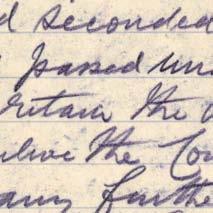 d seconded
passed un
retain the
the Com
any furthe